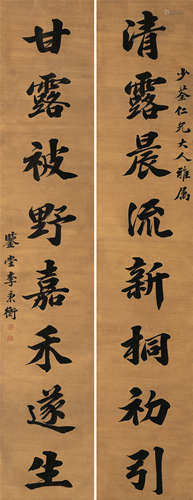 少荃仁兄大人雅属
清露晨流新桐初引
甘露被野嘉禾遂生
鉴堂李秉衡